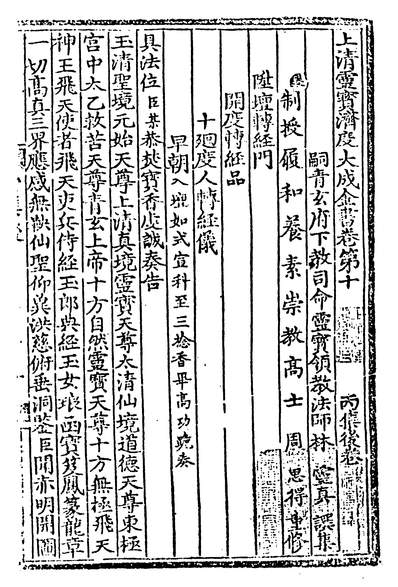 上清靈寶濟度大成金書卷第十
丙集後卷
嗣青玄府下教司命靈寶領教法師林 靈真 譔集
制授履和養素崇教高士 周 思得 重修
陞壇轉經門
開度轉經品
十廻度人轉經儀
早朝入壇如式宣科至三捻香畢高功䟽奏
具法位臣某恭焚寶香虔誠奏告
玉清聖境元始天尊上清真境靈寶天尊太清仙境道德天尊東極
宮中太乙救苦天尊青玄上帝十方自然靈寶天尊十方無極飛天
神王飛天使者飛天吏兵侍經玉郎典經玉女琅函寶笈鳳篆龍章
一切髙真三界應感無鞅仙聖仰兾洪慈俯垂洞鑒臣聞赤明開圖